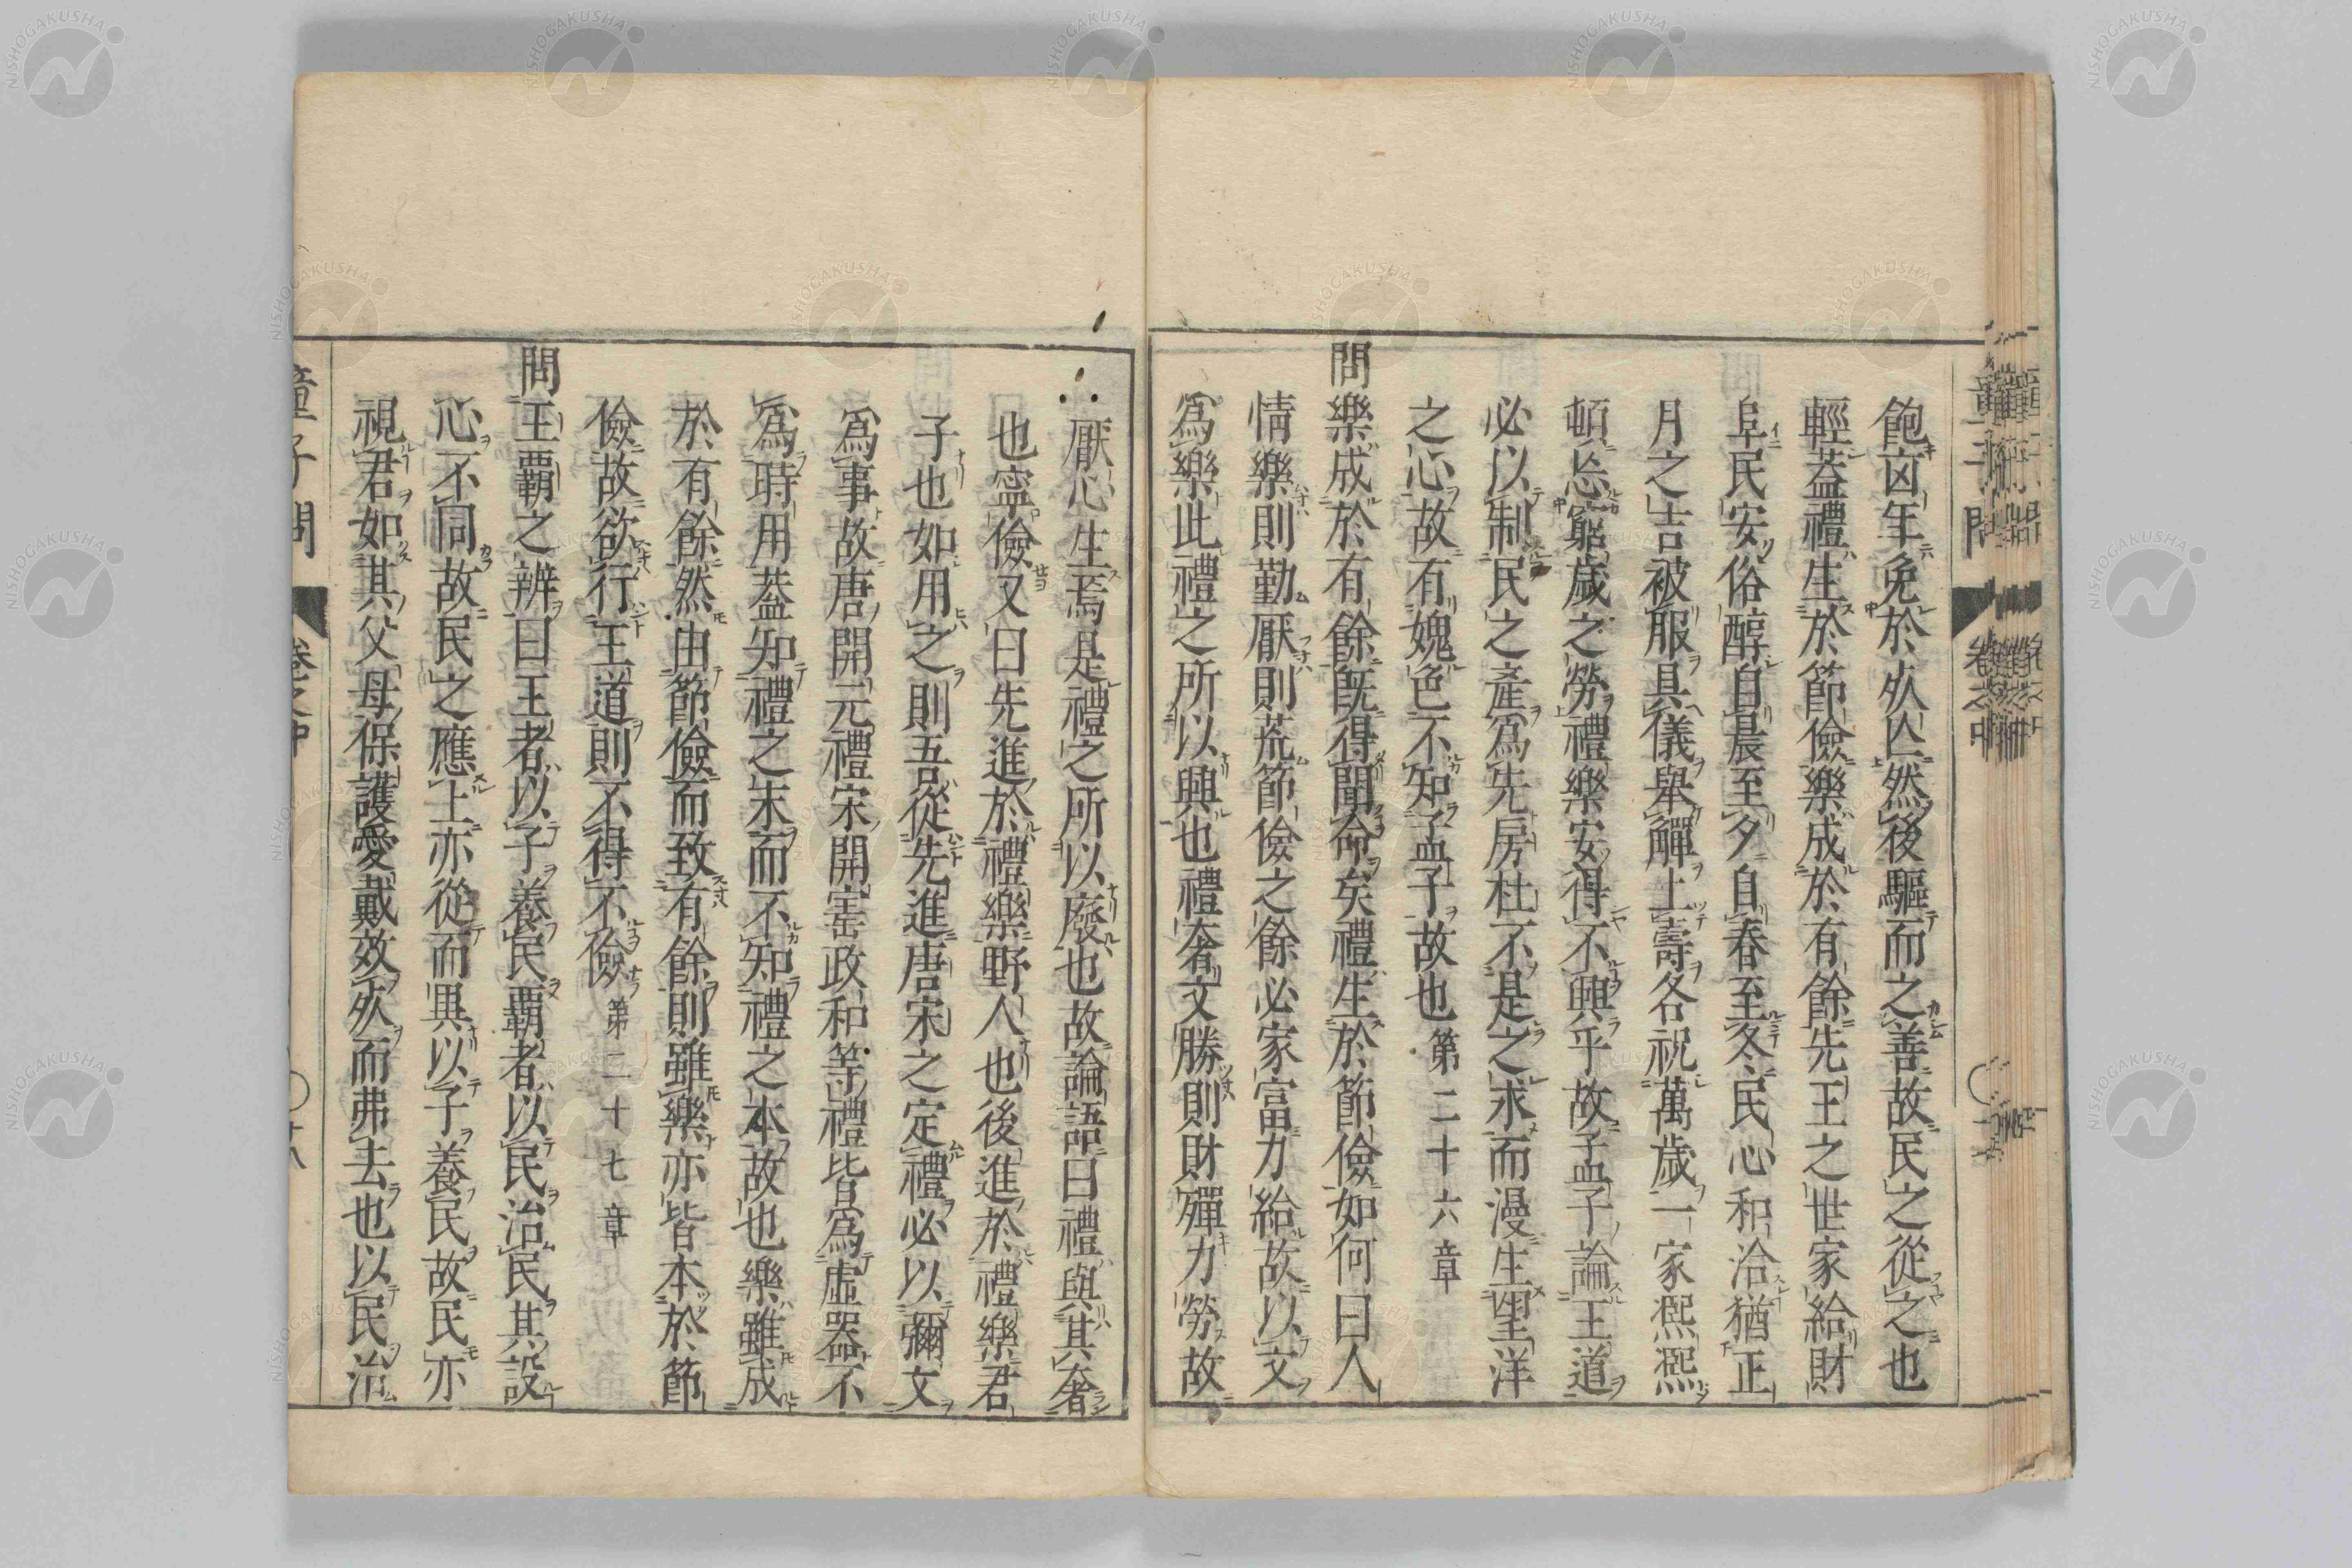 飽凶年免於死亾然後驅而之善故民之從之也
輕蓋禮生於節儉樂成於有餘先王之世家給財
阜民安俗醇自晨至夕自春至冬民心和洽猶正
月之吉被服具儀舉觶上壽各祝萬歲一家熙熙
頓忘窮歲之勞禮樂安得不興乎故孟子論王道
必以制民之產爲先房杜不是之求而漫生望洋
之心故有媿色不知孟子故也第二十六章
問樂成於有餘旣得聞命矣禮生於節儉如何曰人
情樂則勤厭則荒節儉之餘必家富力給故以文
爲樂此禮之所以興也禮奢文勝則財殫力勞故
厭心生焉是禮之所以廢也故論語曰禮與其奢
也寧儉又曰先進於禮樂野人也後進於禮樂君
子也如用之則吾從先進唐宋之定禮必以彌文
爲事故唐開元禮宋開寶政和等禮皆爲虛器不
爲時用蓋知禮之末而不知禮之本故也樂雖成
於有餘然由節儉而致有餘則雖樂亦皆本於節
儉故欲行王道則不得不儉第二十七章
問王霸之辨曰王者以子養民霸者以民治民其設
心不同故民之應上亦從而異以子養民故民亦
視君如其父母保護愛戴效死而弗去也以民治
童子問 卷之中 十八